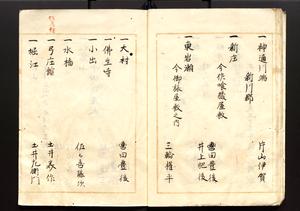 一 神通川端 片山伊賀
新川郡
一 新庄
今作喰蔵屋敷 井上肥後
一 東岩瀬 三輪権平
今御旅屋敷之内
一 大村 轡田豊後
一 佛生寺
一 小出 轡田豊後
一 水橋 佐々喜藤次
一 弓庄舘 土井美作
一 堀江 土井九衛門